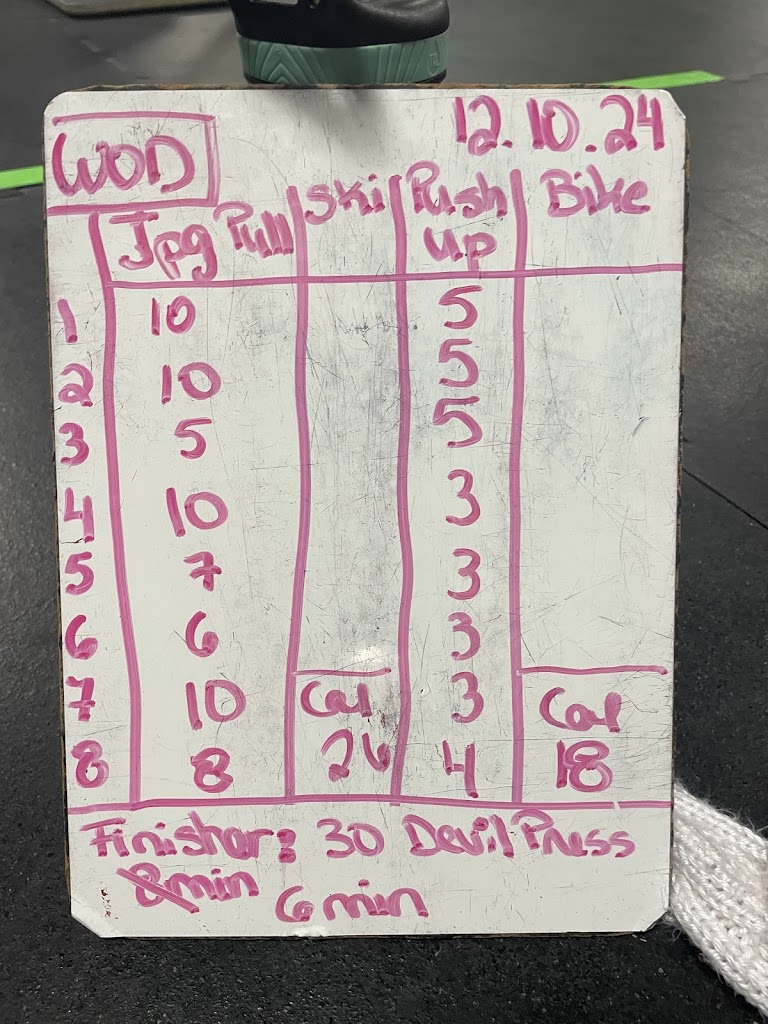 12.10.24
WOD
Jpg Pull Ski Push Up Bike
1 10 5
2 10 5
3 5 5
4 10 3
5 7 3
6 6 3
7 10 Cal 3 Cal
8 8 26 4 18
Finishor: 30 Devil Press
8min 6 min